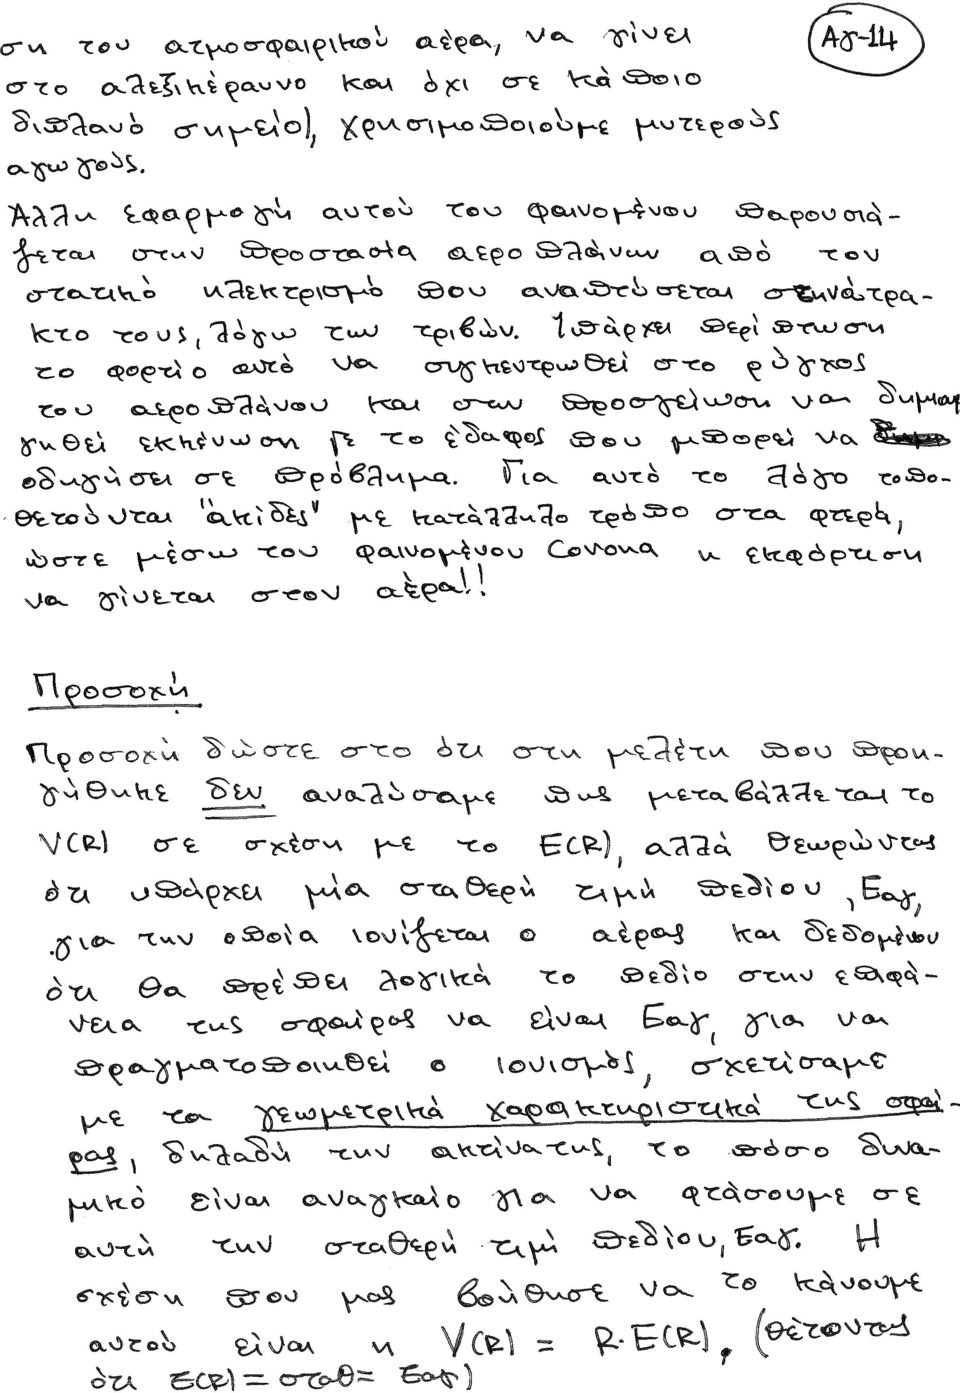 ση του ατμοσφαιρικού αέρα, να γίνει
Αγ-14
στο αλεξικέραυνο και όχι σε κάποιο
διπλανό σημείο), χρησιμοποιούμε μυτερούς
αγωγούς.
Άλλη εφαρμογή αυτού του φαινομένου παρουσιά-
ζεται στην προστασία αεροπλάνων από τον
στατικό ηλεκτρισμό που αναπτύσεται στην άτρα-
κτο τους, λόγω των τριβών. Υπάρχει περίπτωση
το φορτίο αυτό να συγκεντρωθεί στο ρύγχος
του αεροπλάνου και στην προσγείωση να δημιουρ
γηθεί εκκένωση με το έδαφος που μπορεί να
οδηγήσει σε πρόβλημα. Για αυτό το λόγο τοπο-
θετούνται "ακίδες" με κατάλληλο τρόπο στα φτερά,
ώστε μέσω του φαινομένου Corona η εκφόρτιση
να γίνεται στον αέρα!!
Προσοχή
Προσοχή δώστε στο ότι στη μελέτη που προη-
γήθηκε δεν αναλύσαμε πώς μεταβάλλεται το
V(R) σε σχέση με το E(R), αλλά θεωρώντας
ότι υπάρχει μία σταθερή τιμή πεδίου, Εαγ,
για την οποία ιονίζεται ο αέρας και δεδομένου
ότι θα πρέπει λογικά το πεδίο στην επιφά-
νεια της σφαίρας να είναι Εαγ, για να
πραγματοποιηθεί ο ιονισμός, σχετίσαμε
με τα γεωμετρικά χαρακτηριστικά της σφαί-
ρας, δηλαδή την ακτίνα της, το πόσο δυνα-
μικό είναι αναγκαίο για να φτάσουμε σε
αυτή την σταθερή τιμή πεδίου, Εαγ. Η
σχέση που μας βοήθησε να το κάνουμε
αυτού είναι η V(R) = R·E(R), (θέτοντας
ότι E(R) = σταθ = Εαγ)